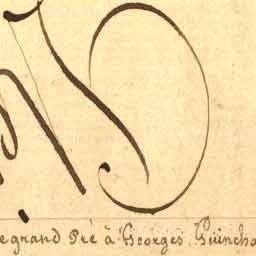 egrand Pré à Georges Guincha